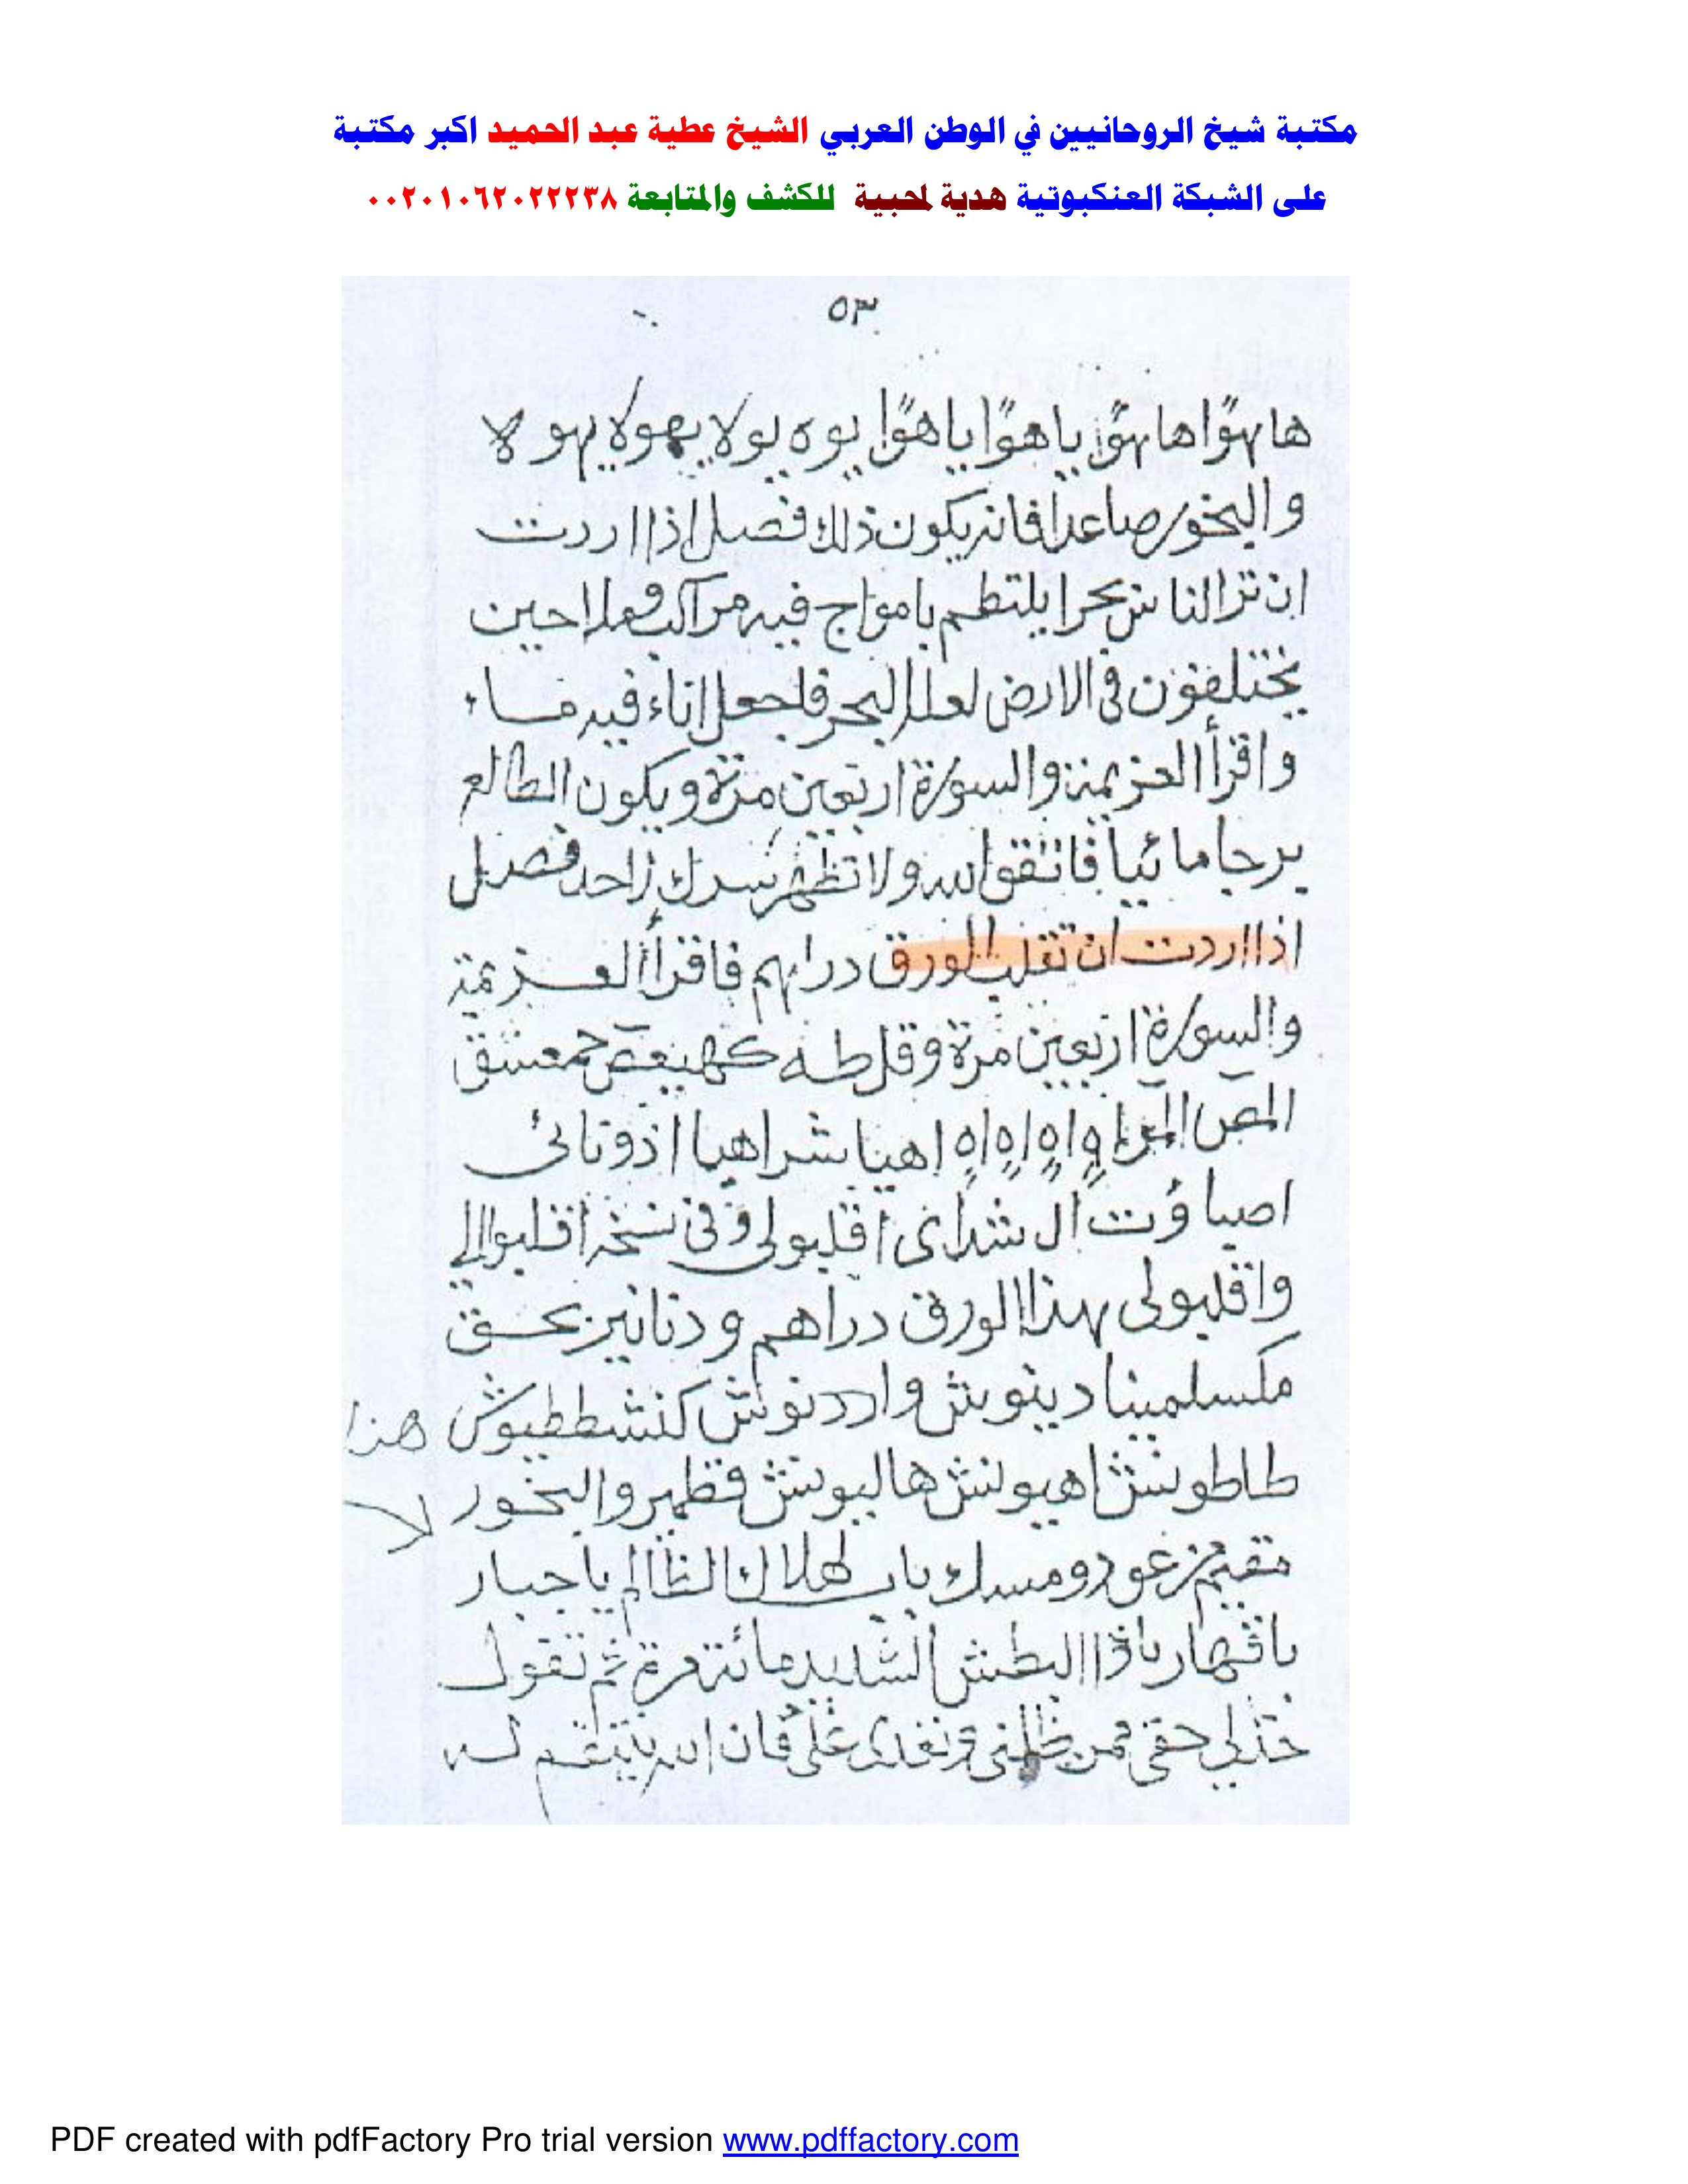 مكتبة شيخ الروحانيين في الوطن العربي الشيخ عطية عبد الحميد اكبر مكتبة
على الشبكة العنكبوتية هدية لمحبية للكشف والمتابعة ٠٠٢٠١٠٦٢٠٢٢٢٣٨
٥٣
هايهوًا هايهوًا ياهوًا ياهوًا يوه يولا يهولا يهولا
والبخور صاعدا فانه يكون ذلك فصل اذا اردت
ان ترا الناس بحرا يلتطم بامواج فيه مراكب وملاحين
يختلفون في الارض لعل البحر فاجعل اناء فيه ماء
واقرأ العزيمة والسورة اربعين مرة ويكون الطالع
برجا مائيا فاتقوا الله ولا تظهر سرك لاحد فصل
اذا اردت ان تقلب الورق دراهم فاقرأ العزيمة
والسورة اربعين مرة وقل طه كهيعص حمعسق
المص المر اهٍ اهٍ اهٍ اهٍ اهيا شراهيا اذوناى
اصباؤت ال شداى اقلبولى وفى نسخة اقلبوالى
واقلبولى بهذا الورق دراهم ودنانير بحق
مكسلمينا دينوش واردنوش كنشططيوش هذا
طاطونش اهيونش هاليونش قطمير والبخور
مقيم عود ومسك باب لهلاك الظالم يا جبار
ياقهار ياذا البطش الشديد مائة مرة ثم تقول
خذلى حقى ممن ظلمنى وتعدى على فان الله ينتقم له
PDF created with pdfFactory Pro trial version www.pdffactory.com